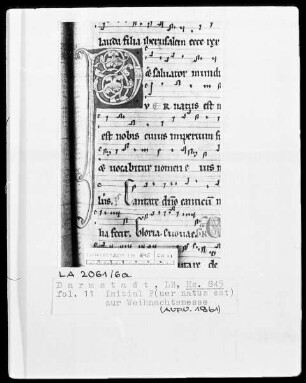 lauda filia iherusalem ecce rex
salvator mundi
VER natus est n
est nobis cuius imperium
& vocabitur nomen e ius
Cantate dño canticum n
fecit. Gloria. Evovae.
LA 2061/6a
Darmstadt, LB, Hs. 845
fol. 11 Initial P(uer natus est)
zur Weihnachtsmesse
(Aufn. 1961)